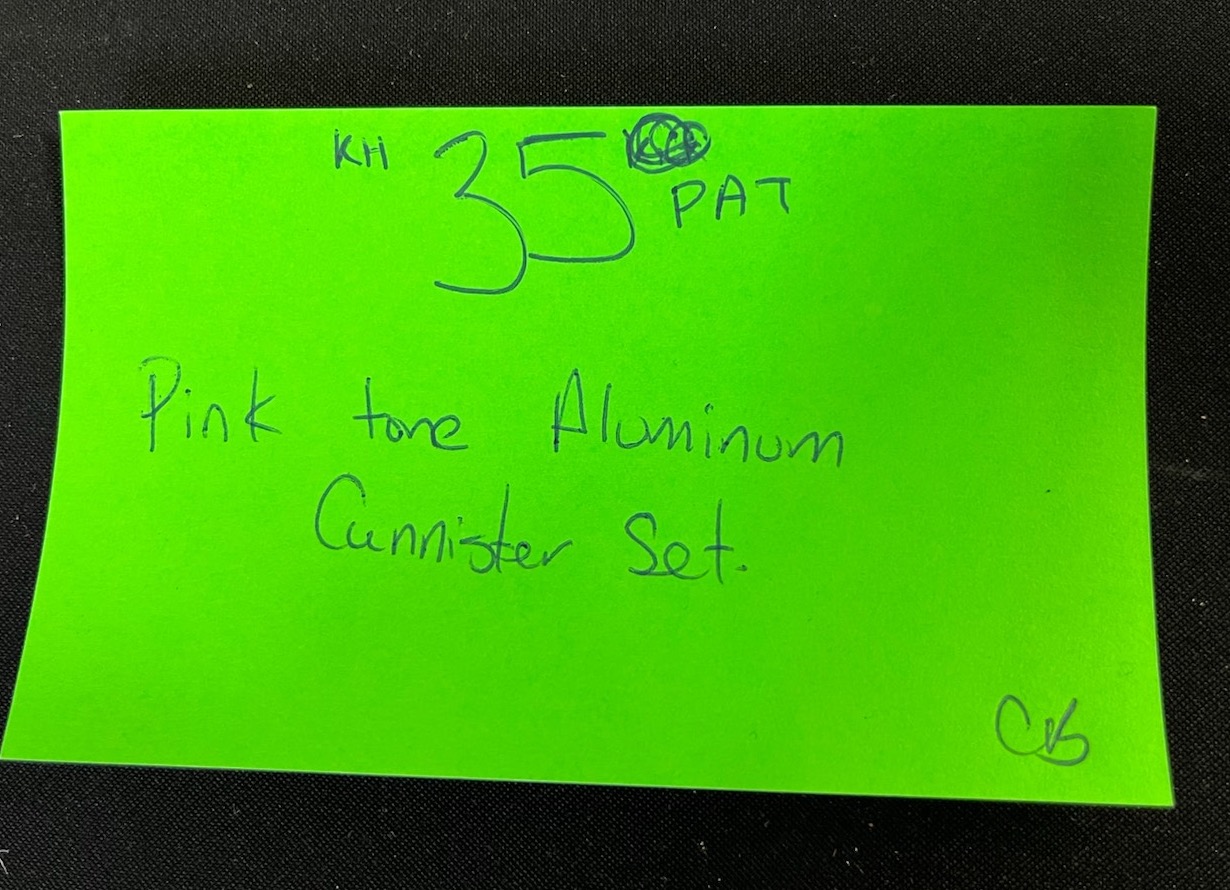 KH 35
PAT
Pink tone Aluminum
Cannister Set.
CB